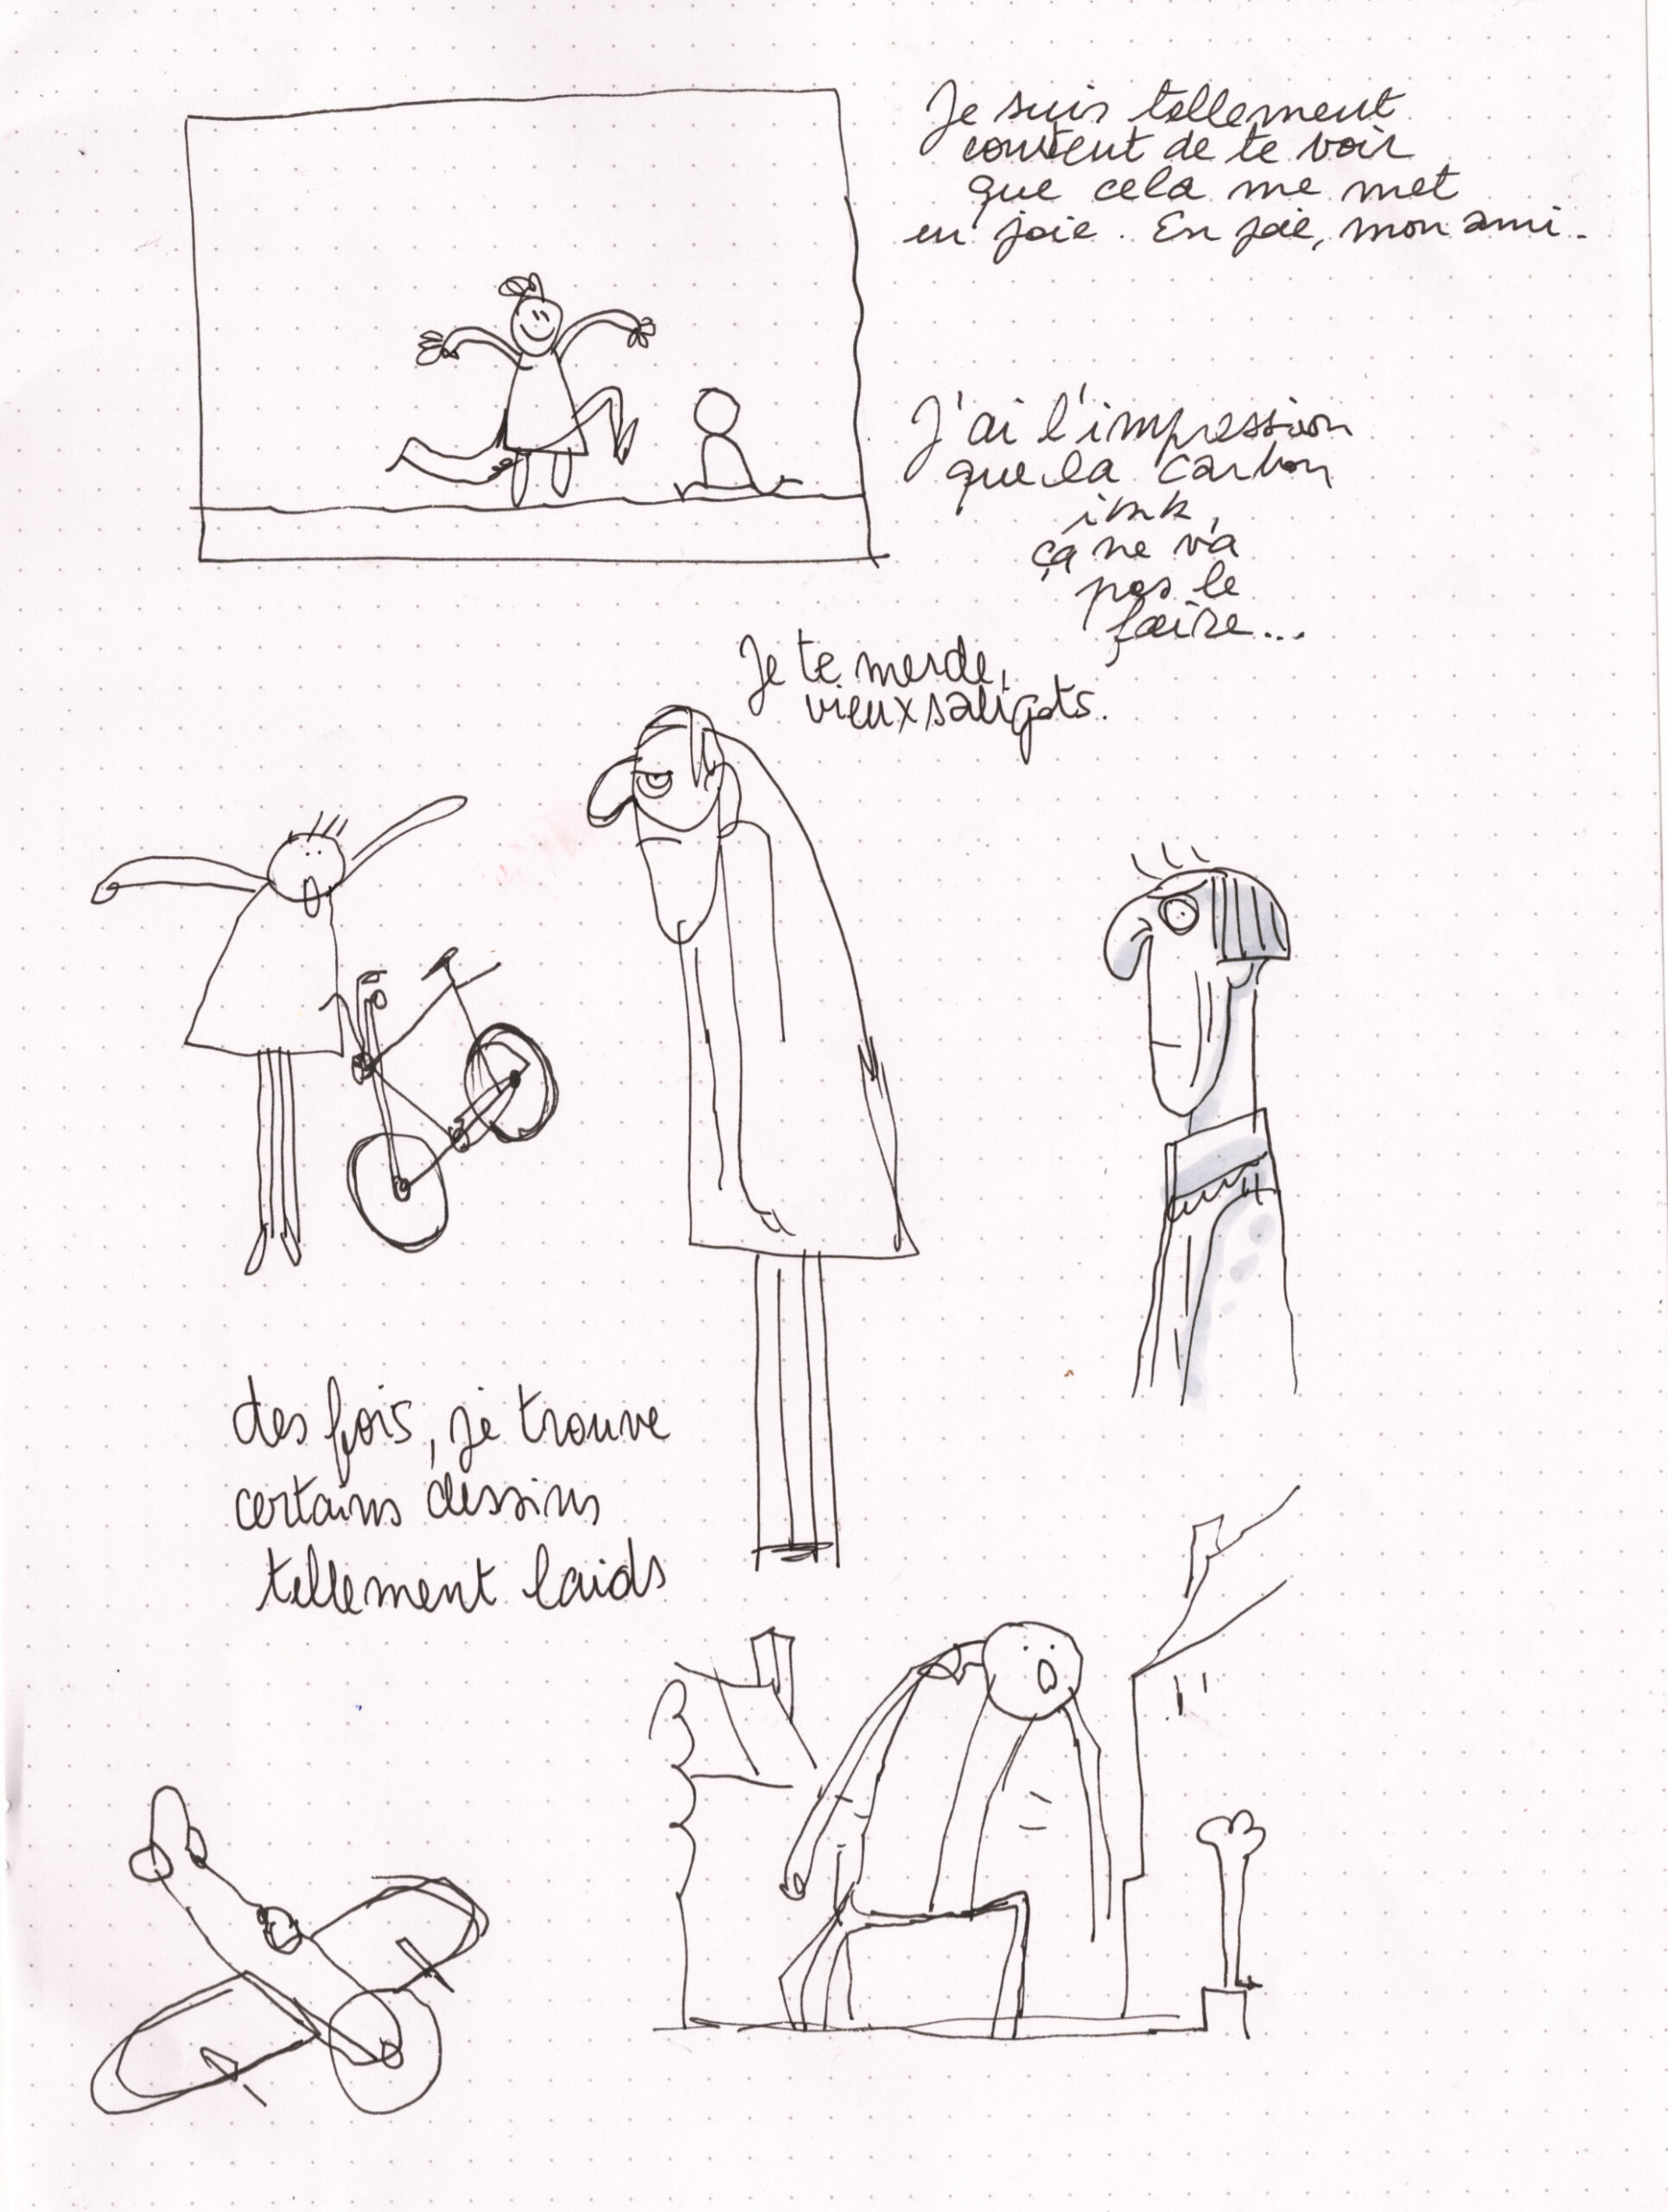 Je suis tellement
content de te voir
que cela me met
en joie. En joie, mon ami.
J'ai l'impression
que la carbon
ink,
ça ne va
pas le
faire...
Je te merde,
vieux saligots.
des fois, je trouve
certains dessins
tellement laids